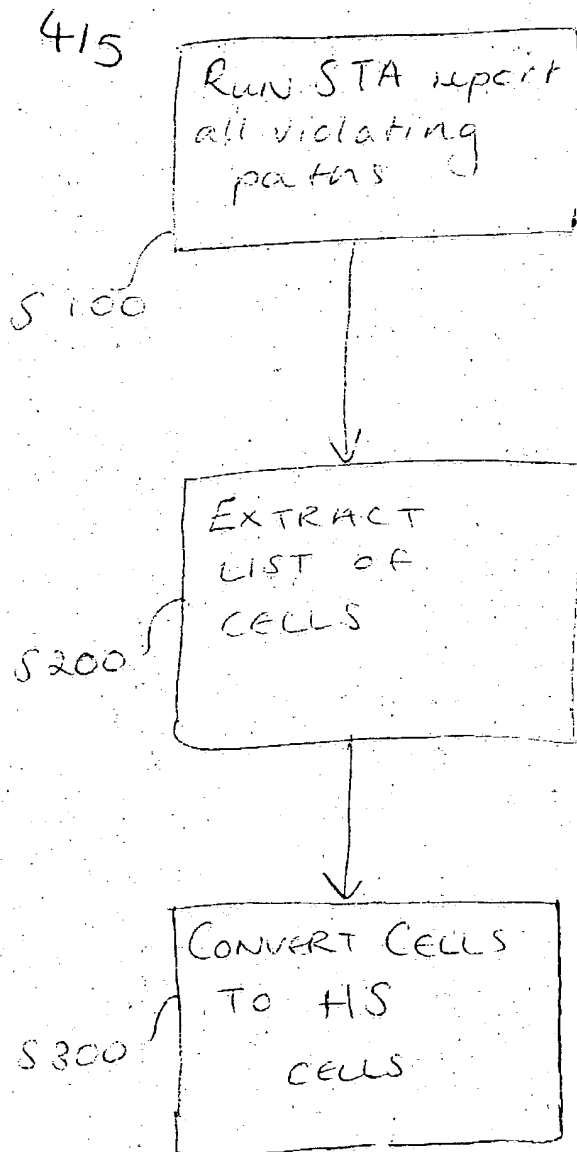 4/5
RUN STA report
all violating
paths
S100
EXTRACT
LIST OF
CELLS
S200
CONVERT CELLS
TO HS
CELLS
S300